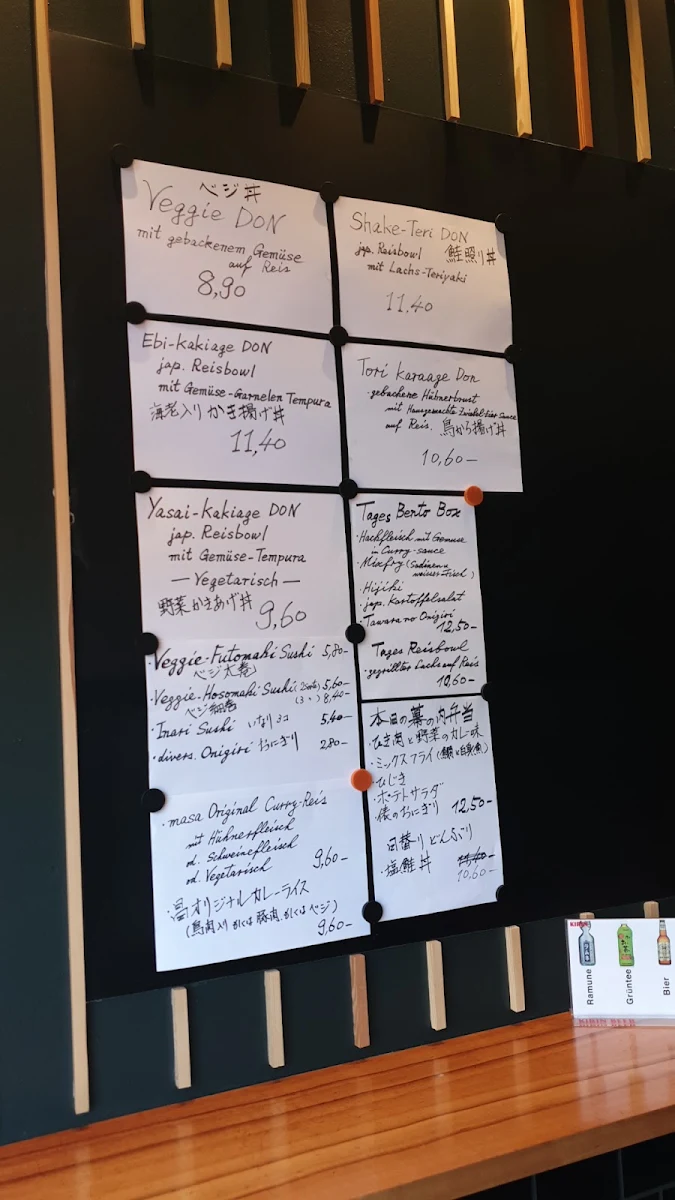 ベジ丼
Veggie DON
mit gebackenem Gemüse
auf Reis
8,90
Shake-Teri DON
jap. Reisbowl 鮭照り丼
mit Lachs-Teriyaki
11,40
Ebi-Kakiage DON
jap. Reisbowl
mit Gemüse-Garnelen Tempura
海老入りかき揚げ丼
11,40
Tori Karaage Don
gebackene Hühnerbrust
mit Hausgemachte Zwiebel-bier Sauce
auf Reis. 鳥から揚げ丼
10,60—
Yasai-Kakiage DON
jap. Reisbowl
mit Gemüse-Tempura
— Vegetarisch —
野菜かきあげ丼
9,60
Tages Bento Box
・Hachfleisch mit Gemüse
in Curry-sauce
・Mixfry (Sardinen u
weisser Fisch)
・Hijiki
・jap. Kartoffelsalat
・Tawara no Onigiri
12,50—
Tages Reisbowl
・gegrillter Lachs auf Reis
10,60—
・Veggie-Futomaki Sushi 5,80—
ベジ太巻
・Veggie-Hosomaki Sushi (2 5,60—
ベジ細巻 (3 〃) 8,40—
・Inari Sushi いなり 5,40—
・divers. Onigiri おにぎり 2,80—
・masa Original Curry-Reis
mit Hühnerfleisch
od. Schweinefleisch
od. Vegetarisch 9,60—
オリジナルカレーライス
(鳥肉入りもしくは豚肉、もしくはベジ)
9,60—
本日の幕の内弁当
・ひき肉と野菜のカレー味
・ミックスフライ(鰯と白身魚)
・ひじき
・ポテトサラダ
・俵のおにぎり 12,50—
日替りどんぶり
・塩鮭丼 11,40—
10,60—
KIRIN
Ramune
Grüntee
Bier